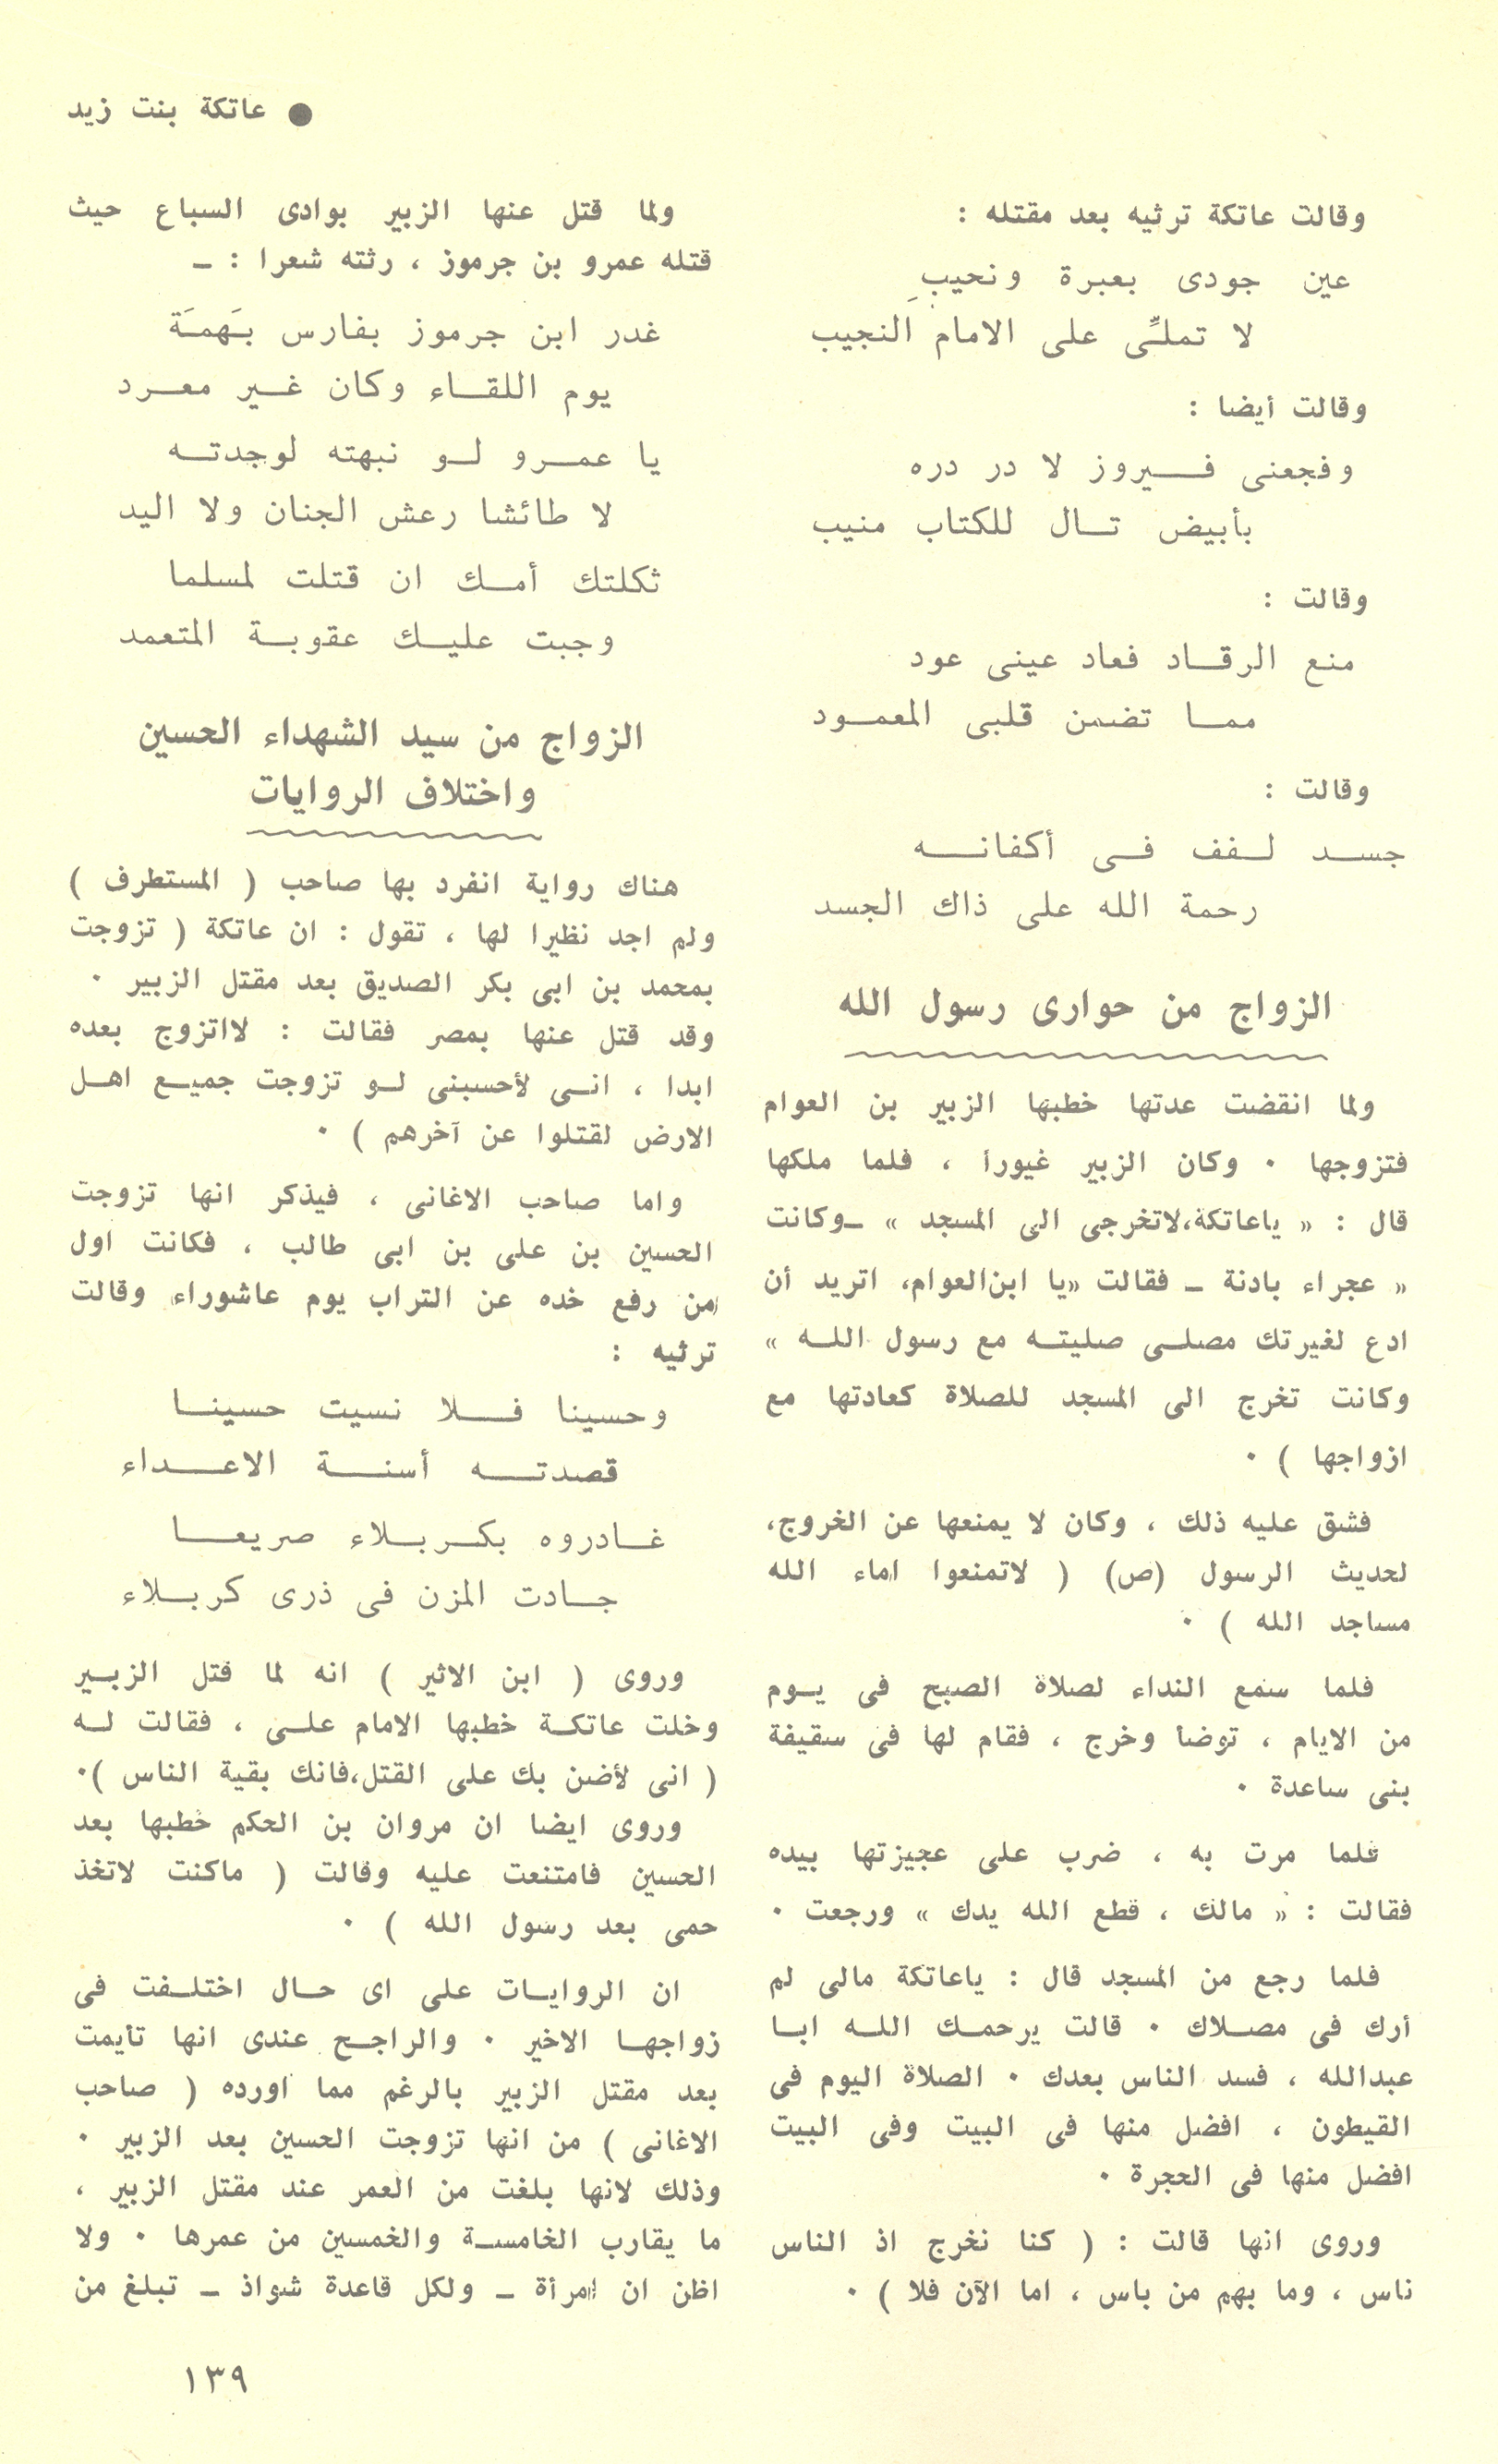 ● عاتكة بنت زيد
وقالت عاتكة ترثيه بعد مقتله :
عين جودى بعبرة ونحيبِ
لا تملِّى على الامام النجيب
وقالت أيضا :
وفجعنى فيروز لا در دره
بأبيض تال للكتاب منيب
وقالت :
منع الرقاد فعاد عينى عود
مما تضمن قلبى المعمود
وقالت :
جسد لفف فى أكفانه
رحمة الله على ذاك الجسد
الزواج من حوارى رسول الله
ولما انقضت عدتها خطبها الزبير بن العوام
فتزوجها ٠ وكان الزبير غيورا ، فلما ملكها
قال : « ياعاتكة،لاتخرجى الى المسجد » ـوكانت
« عجراء بادنة ـ فقالت «يا ابن‌العوام، اتريد أن
ادع لغيرتك مصلى صليته مع رسول الله »
وكانت تخرج الى المسجد للصلاة كعادتها مع
ازواجها ) ٠
فشق عليه ذلك ، وكان لا يمنعها عن الخروج،
لحديث الرسول (ص) ( لاتمنعوا اماء الله
مساجد الله ) ٠
فلما سمع النداء لصلاة الصبح فى يوم
من الايام ، توضأ وخرج ، فقام لها فى سقيفة
بنى ساعدة ٠
فلما مرت به ، ضرب على عجيزتها بيده
فقالت : « مالك ، قطع الله يدك » ورجعت ٠
فلما رجع من المسجد قال : ياعاتكة مالى لم
أرك فى مصلاك ٠ قالت يرحمك الله ابا
عبدالله ، فسد الناس بعدك ٠ الصلاة اليوم فى
القيطون ، افضل منها فى البيت وفى البيت
افضل منها فى الحجرة ٠
وروى انها قالت : ( كنا نخرج اذ الناس
ناس ، وما بهم من باس ، اما الآن فلا ) ٠
ولما قتل عنها الزبير بوادى السباع حيث
قتله عمرو بن جرموز ، رثته شعرا : ـ
غدر ابن جرموز بفارس بَهمَة
يوم اللقاء وكان غير معرد
يا عمرو لو نبهته لوجدته
لا طائشا رعش الجنان ولا اليد
ثكلتك أمك ان قتلت لمسلما
وجبت عليك عقوبة المتعمد
الزواج من سيد الشهداء الحسين
واختلاف الروايات
هناك رواية انفرد بها صاحب ( المستطرف )
ولم اجد نظيرا لها ، تقول : ان عاتكة ( تزوجت
بمحمد بن ابى بكر الصديق بعد مقتل الزبير ٠
وقد قتل عنها بمصر فقالت : لااتزوج بعده
ابدا ، انى لأحسبنى لو تزوجت جميع اهل
الارض لقتلوا عن آخرهم ) ٠
واما صاحب الاغانى ، فيذكر انها تزوجت
الحسين بن على بن ابى طالب ، فكانت اول
من رفع خده عن التراب يوم عاشوراء وقالت
ترثيه :
وحسينا فلا نسيت حسينا
قصدته أسنة الاعداء
غادروه بكربلاء صريعا
جادت المزن فى ذرى كربلاء
وروى ( ابن الاثير ) انه لما قتل الزبير
وخلت عاتكة خطبها الامام على ، فقالت له
( انى لأضن بك على القتل،فانك بقية الناس )٠
وروى ايضا ان مروان بن الحكم خطبها بعد
الحسين فامتنعت عليه وقالت ( ماكنت لاتخذ
حمى بعد رسول الله ) ٠
ان الروايات على اى حال اختلفت فى
زواجها الاخير ٠ والراجح عندى انها تأيمت
بعد مقتل الزبير بالرغم مما اورده ( صاحب
الاغانى ) من انها تزوجت الحسين بعد الزبير ٠
وذلك لانها بلغت من العمر عند مقتل الزبير ،
ما يقارب الخامسة والخمسين من عمرها ٠ ولا
اظن ان امرأة ـ ولكل قاعدة شواذ ـ تبلغ من
١٣٩